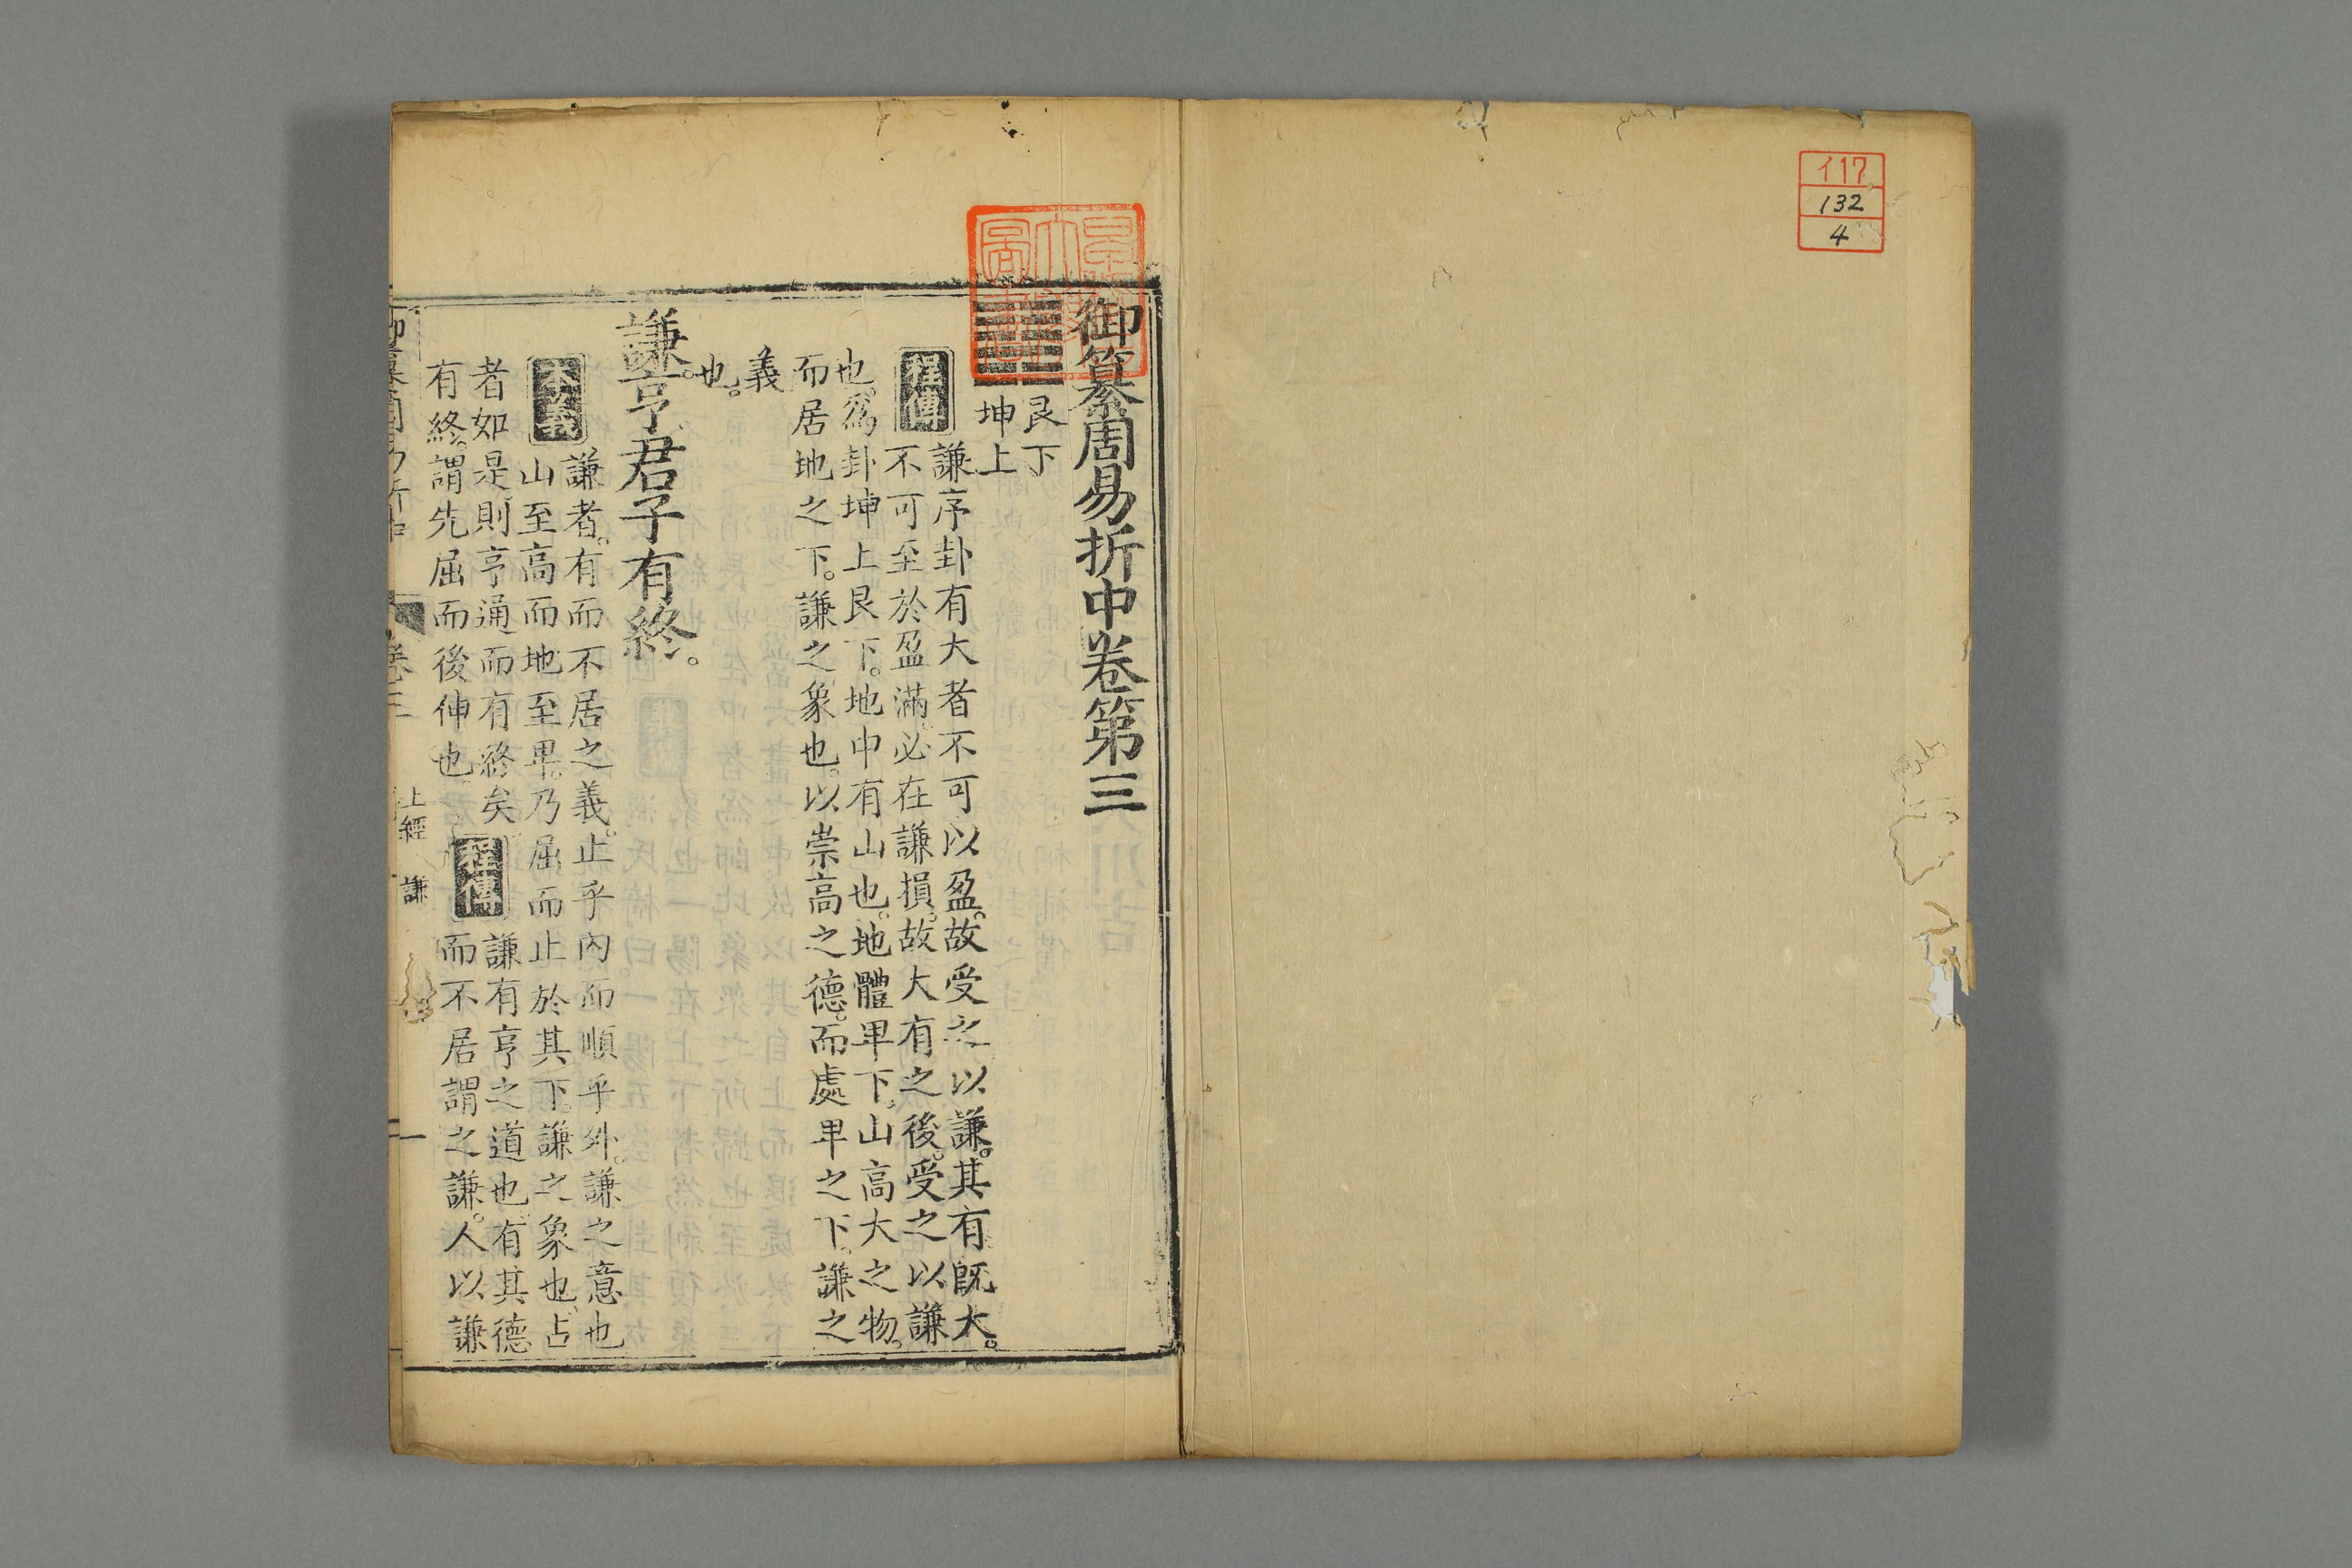 イ17
132
4
御纂周易折中卷第三
艮下
坤上
程傳
謙序卦有大者不可以盈。故受之以謙。其有旣大。
不可至於盈滿。必在謙損。故大有之後。受之以謙
也。爲卦坤上艮下。地中有山也。地體卑下。山高大之物。
而居地之下。謙之象也。以崇高之德。而處卑之下。謙之
義
也。
謙。亨。君子有終。
本義
謙者。有而不居之義。止乎內而順乎外。謙之意也
山至高而地至卑。乃屈而止於其下。謙之象也。占
者如是。則亨通而有終矣
有終。謂先屈而後伸也
程傳
謙有亨之道也。有其德
而不居謂之謙。人以謙
御纂周易折中 卷三 上經 謙 一